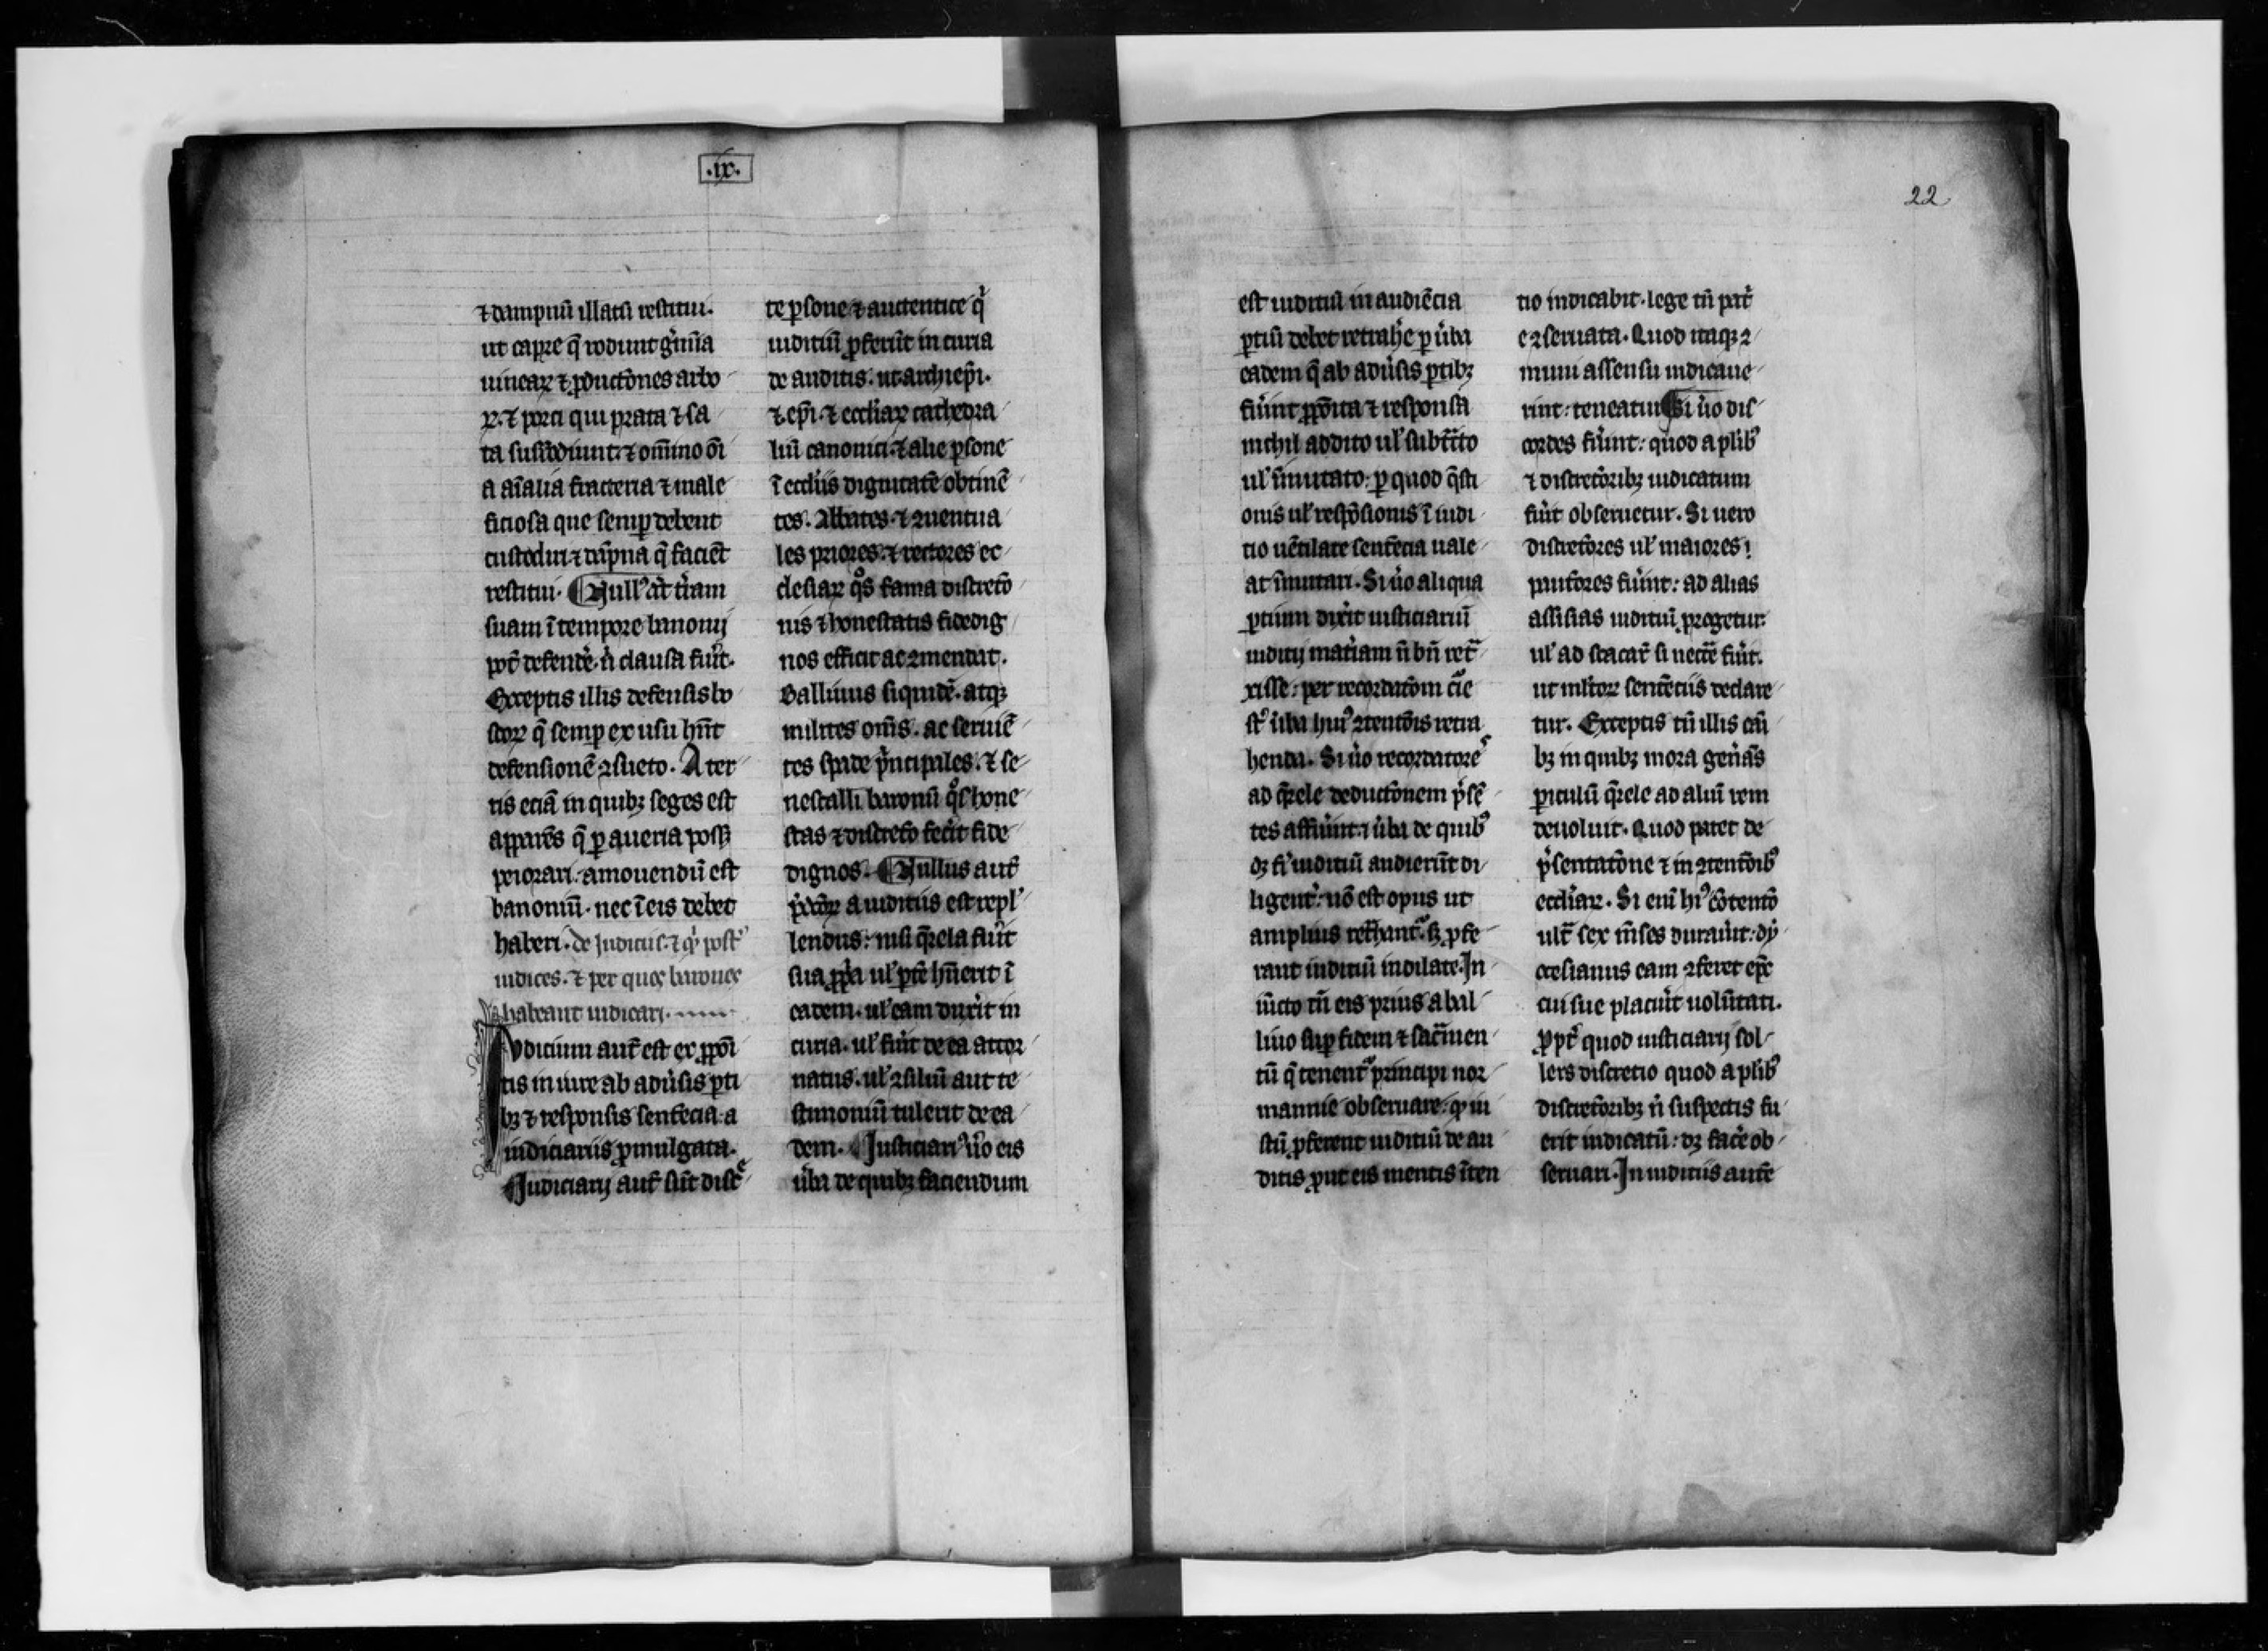 .ix.
⁊ dampnū illatū restitui.
ut capre q̄ rodunt gͥmīa
uineaꝝ ⁊ ꝓductōnes arbo
ꝝ. ⁊ porci qui prata ⁊ ſa
ta ſuffodiunt: ⁊ om̄ino oī
a aīalia fracteria ⁊ male
ficioſa que ſemꝑ debent
cuſtodiri ⁊ dāpna q̄ faciēt
reſtitui. Nullꝰ aūt t̄ram
ſuam ī tempore banonij
pōt defendere. nͥ clauſa fuͥit.
Exceptis illis defenſis lo
coꝝ q̄ ſemꝑ ex uſu hn̄t
defenſionē ꝯſueto. A ter
ris eciā in quibꝫ ſeges eſt
apparēs q̄ ꝑ aueria poſſꝫ
peiorari. amouendū eſt
banoniū. nec ī eis debet
haberi. de Judiciis. ⁊ qͥ poſſ
iudices. ⁊ per quos barones
habeant iudicari.
Iudicium aut̄ eſt ex ꝓpoſi
tis in iure ab aduͥſis ꝑti
bꝫ ⁊ reſponſis ſentēcia a
iudiciariis ꝓmulgata.
Judiciarij aut̄ ſūt diſcͤ
te ꝑſone ⁊ auctentice qͥ
iudiciū ꝓferūt in curia
de auditis. ut archiep̄i.
⁊ ep̄i. ⁊ eccl̄iaꝝ cathedra
liū canonici. ⁊ alie ꝑſone
ī eccl̄iis dignitatē obtinē
tes. Abbates. ⁊ ꝯuentua
les priores. ⁊ rectores ec
cleſiaꝝ qͦs fama diſcretō
nis ⁊ honeſtatis fidedig
nos efficit ac ꝯmendat.
Balliuus ſiquidē. atqꝫ
milites om̄s. ac ſeruiē
tes ſpade pͥncipales. ⁊ ſe
neſcalli baronū qͦs hone
ſtas ⁊ diſcretō fecͥit fide
dignos. Nullus aut̄
p̄dc̄oꝝ a iudiciis eſt repl̄
lendus: niſi q̄rela fuͥit
ſua ꝓpͥa ul̓ ꝑtē hūerit ī
eadem. ul̓ eam duxͥit in
curia. ul̓ fuͥit de ea attor
natus. ul̓ ꝯſiliū aut te
ſtimoniū tulerit de ea
dem. Juſticiariꝰ uͦo eis
uͥba de quibꝫ faciendum
22
eſt iudiciū in audiēcia
ꝑtiū debet retrahͤe ꝑ uͥba
eadem q̄ ab aduͥſis ꝑtibꝫ
fuͥint ꝓpoſita ⁊ reſponſa
nichil addito ul̓ ſubtͣcto
ul̓ īmutato: ꝑ quod q̄ſti
onis ul̓ reſpōſionis ī iudi
cio uētilate ſentēcia uale
at īmutari. Si uͦo aliqua
ꝑtium dixͥit iuſticiariū
iudicij matͥiam n̄ bn̄ retͣ
xiſſe: per recordatōm cͥie
ſt̄ uͥba huiꝰ ꝯtentōis retra
henda. Si uͦo recordatoreſ
ad q̄rele deductōnem pͥſē
tes affuͥint: ⁊ uͥba de quibꝰ
dꝫ fͥi iudiciū audierūt di
ligent̄: nō eſt opus ut
amplius ret̄hantͬ. ſꝫ ꝓfe
rant iudiciū indilate. In
iūcto tn̄ eis prius a bal
liuo ſuꝑ fidem ⁊ ſacͣmen
tū q̄ tenentͬ principi nor
mannie obſeruare: ꝙ iu
ſtū ꝓferent iudiciū de au
ditis ꝓut eis mentis īten
tio indicabit. lege tn̄ patͥ
e ꝯſeruata. Quod itaqꝫ ꝯ
muni aſſenſu iudicaue
rint: teneatur. Si uͦo diſ
cordes fuͥint: quod a plͥibꝰ
⁊ diſcretōribꝫ iudicatum
fuͥit obſeruetur. Si uero
diſcretōres ul̓ maiores
pauciores fuͥint: ad alias
aſſiſias iudiciū ꝓrogetur.
ul̓ ad ſcacar̄ ſi neccē fuͥit.
ut ml̓toꝝ ſentēciis declare
tur. Exceptis tn̄ illis cāu
bꝫ in quibꝫ mora genͥans
ꝑiculū q̄rele ad aliū rem
deuoluit. Quod patet de
pͥſentatōne ⁊ in ꝯtentōibꝰ
eccl̄iaꝝ. Si eni hͥꝰ cōtentō
ult̄ ſex mēſes durauͥit: dy
oceſianus eam ꝯferet eccͤ
cui ſue placuͥit uolūtati.
ꝓpt̄ quod iuſticiarij ſol
lers diſcretio quod a plͥibꝰ
diſcretōribꝫ n̄ ſuſpectis fu
erit iudicatū: dꝫ facͤe ob
ſeruari. In iudiciis aut̄e